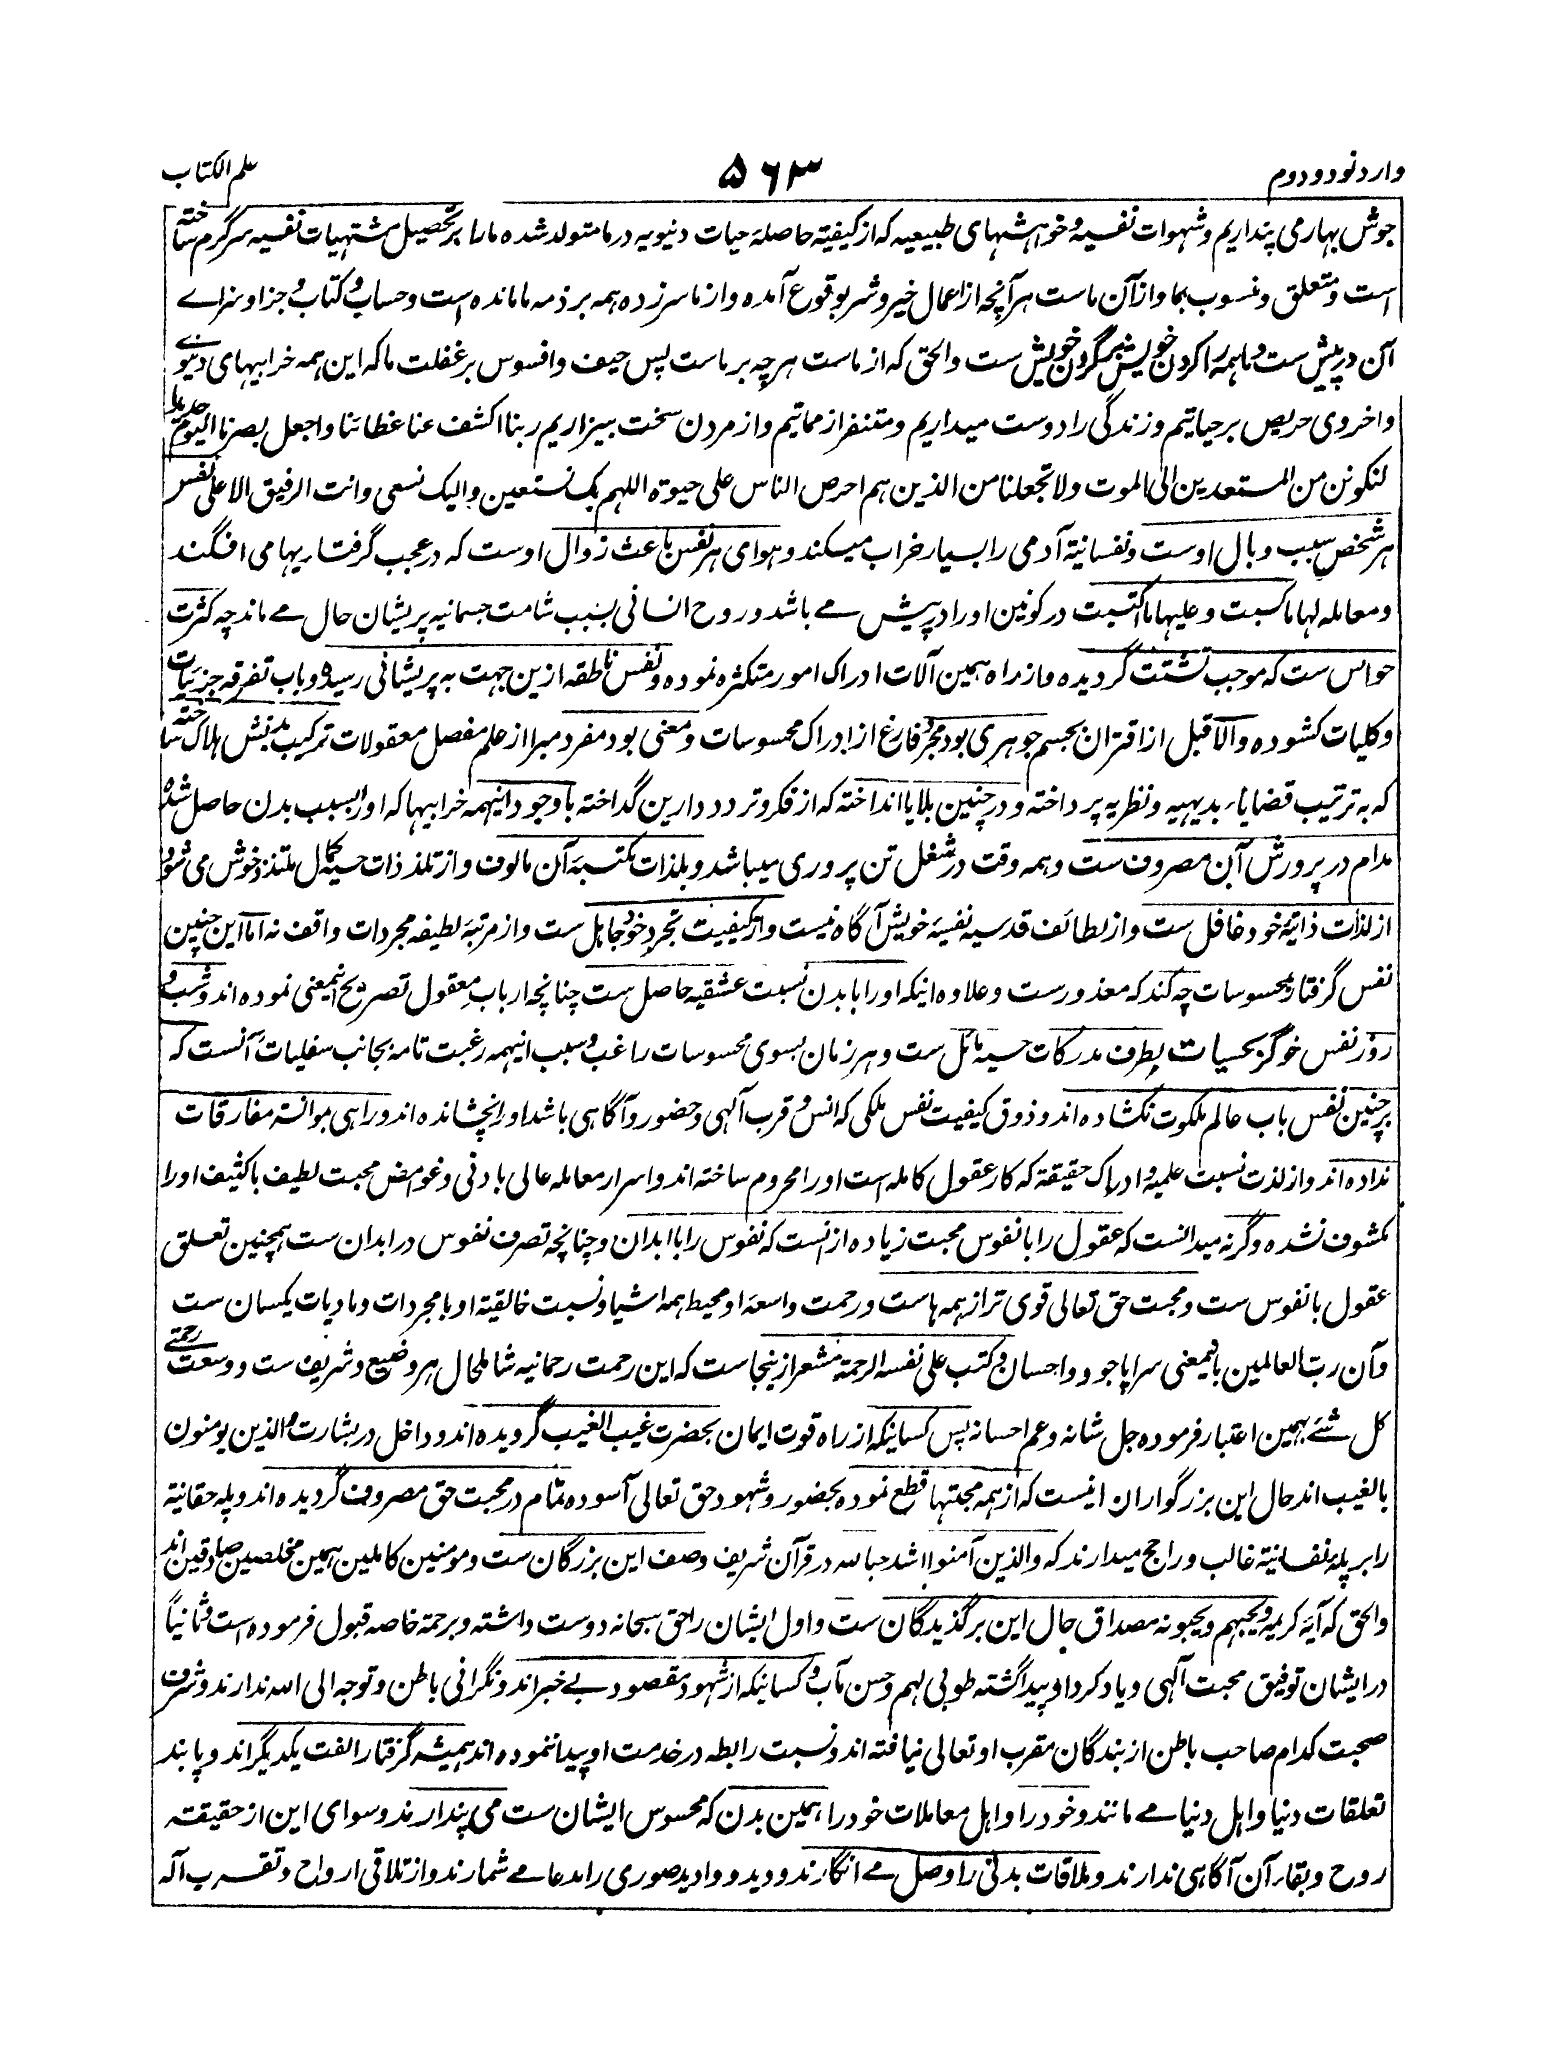 وارد نود و دوم
۵۶۳
علم الکتاب
جوش بهار می پنداریم و شهوات نفسیه و خواهشهای طبیعیه که از کیفیة حاصلهٔ حیات دنیویه در ما متولد شده ما را بر تحصیل مشتهیات نفسیه سرگرم ساخته
است و متعلق و منسوب بما و از آن ماست هر آنچه از اعمال خیر و شر بوقوع آمده و از ما سر زده همه بر ذمه ما مانده است و حساب و کتاب و جزا و سزاے
آن درپیش ست و ما همه را کردن خویش بگردن خویش ست والحق که از ماست هر چه بر ماست پس حیف و افسوس بر غفلت ما که این همه خرابیهای دنیوے
و اخروی حریص بر حیاتیم و زندگی را دوست میداریم و متنفر از مماتیم و از مردن سخت بیزاریم ربنا اکشف عنا غطائنا واجعل بصرنا الیوم حدیدا
لنکونن من المستعدین الی الموت ولا تجعلنا من الذین هم احرص الناس علی حیوة اللهم بک نستعین والیک نسعی وانت الرفیق الاعلی نفس
هر شخص سبب وبال اوست و نفسانیة آدمی را بسیار خراب میکند و هوای هر نفس باعث زوال اوست که در عجب گرفتاریها می افگند
و معامله لها ما کسبت و علیها ما اکتسبت در کونین او را درپیش مے باشد و روح انسانی بسبب شامت جسمانیه پریشان حال مے ماند چه کثرت
حواس ست که موجب تشتت گردیده و از راه همین آلات ادراک امور متکثره نموده و نفس ناطقه ازین جهت به پریشانی رسیده و باب تفرقه جزئیات
و کلیات کشوده والا قبل از اقتران بجسم جوهری بود مجرد فارغ از ادراک محسوسات و معنی بود مفرد مبرا از علم مفصل معقولات ترکیب بدنش هلاک ساخته
که به ترتیب قضایاء بدیهیه و نظریه پرداخته و در چنین بلایا انداخته که از فکر و تردد دارین گداخته با وجود اینهمه خرابیها که او را بسبب بدن حاصل شده
مدام در پرورش آن مصروف ست و همه وقت در شغل تن پروری میباشد و بلذات مکتسبهٔ آن مالوف و از تلذذات حسیه بکمال متلذذ و خوش می شود و
از لذات ذاتیهٔ خود غافل ست و از لطائف قدسیه نفسیهٔ خویش آگاه نیست و از کیفیت تجرد خود جاهل ست و از مرتبهٔ لطیفه مجردات واقف نه اما این چنین
نفس گرفتار محسوسات چه کند که معذورست و علاوه اینکه او را با بدن نسبت عشقیه حاصل ست چنانچه ارباب معقول تصریح اینمعنی نموده اند و شب و
روز نفس خوگر بحسیات بطرف مدرکات حسیه مائل ست و هر زمان بسوی محسوسات راغب و سبب اینهمه رغبت تامه بجانب سفلیات آنست که
بر چنین نفس باب عالم ملکوت نکشاده اند و ذوق کیفیت نفس ملکی که انس و قرب آلهی و حضور و آگاهی باشد او را نچشانده اند و راهی بموانسة مفارقات
نداده اند و از لذت نسبت علمیه و ادراک حقیقة که کار عقول کامله است او را محروم ساخته اند و اسرار معامله عالی با دنی و غوامض محبت لطیف با کثیف او را
مکشوف نشده وگرنه میدانست که عقول را با نفوس محبت زیاده ازانست که نفوس را با ابدان و چنانچه تصرف نفوس در ابدان ست همچنین تعلق
عقول با نفوس ست و محبت حق تعالی قوی تر از همه هاست و رحمت واسعهٔ او محیط همه اشیا و نسبت خالقیة او با مجردات و مادیات یکسان ست
و آن رب العالمین بانیمعنی سراپا جود و احسان و کتب علی نفسه الرحمة مشعر ازینجاست که این رحمت رحمانیه شاملحال هر وضیع و شریف ست و وسعت رحمتے
کل شئے بهمین اعتبار فرموده جل شانه و عم احسانه پس کسانیکه از راه قوت ایمان بحضرت غیب الغیب گرویده اند و داخل در بشارت والذین یومنون
بالغیب اند حال این بزرگواران اینست که از همه محبتها قطع نموده بحضور و شهود حق تعالی آسوده تمام در محبت حق مصروف گردیده اند و پله حقانیة
را بر پلهٔ نفسانیة غالب و راجح میدارند که والذین آمنوا اشد حبا لله در قرآن شریف وصف این بزرگان ست و مومنین کاملین همین مخلصین صادقین اند
والحق که آیهٔ کریمهٔ یحبهم ویحبونه مصداق حال این برگذیدگان ست و اول ایشان را حق سبحانه دوست داشته و برحمة خاصه قبول فرموده است و ثانیاً
در ایشان توفیق محبت آلهی و یاد کرد او پیدا گشته طوبی لهم وحسن مآب و کسانیکه از شهود مقصود بے خبر اند و نگرانی باطن و توجه الی الله ندارند و شرف
صحبت کدام صاحب باطن از بندگان مقرب او تعالی نیافته اند و نسبت رابطه در خدمت او پیدا ننموده اند همیشه گرفتار الفت یکدیگر اند و پابند
تعلقات دنیا و اهل دنیا مے مانند و خود را و اهل معاملات خود را همین بدن که محسوس ایشان ست می پندارند و سوای این از حقیقة
روح و بقاء آن آگاهی ندارند و ملاقات بدنی را وصل مے انگارند و دید و وادید صوری را مدعا مے شمارند و از تلاقی ارواح و تقرب آله